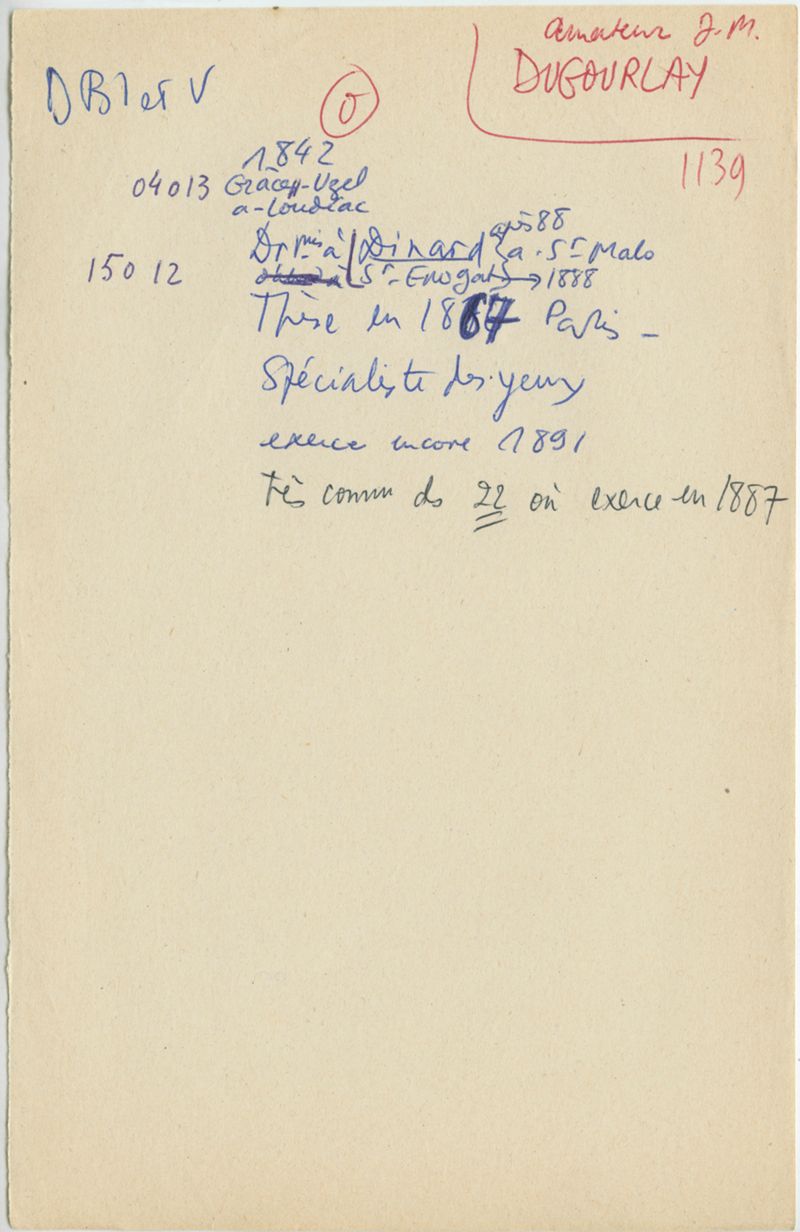 amateur J.M.
DUGOURLAY
D B1 et V
O
1139
1842
04013 Grâce-Uzel
a-Loudéac
après 88
Dr puis à Dinard a. St Malo
15012 St-Enogat → 1888
Thèse en 1867 Paris -
Spécialiste des yeux
exerce encore 1891
très connu ds 22 où exerce en 1887